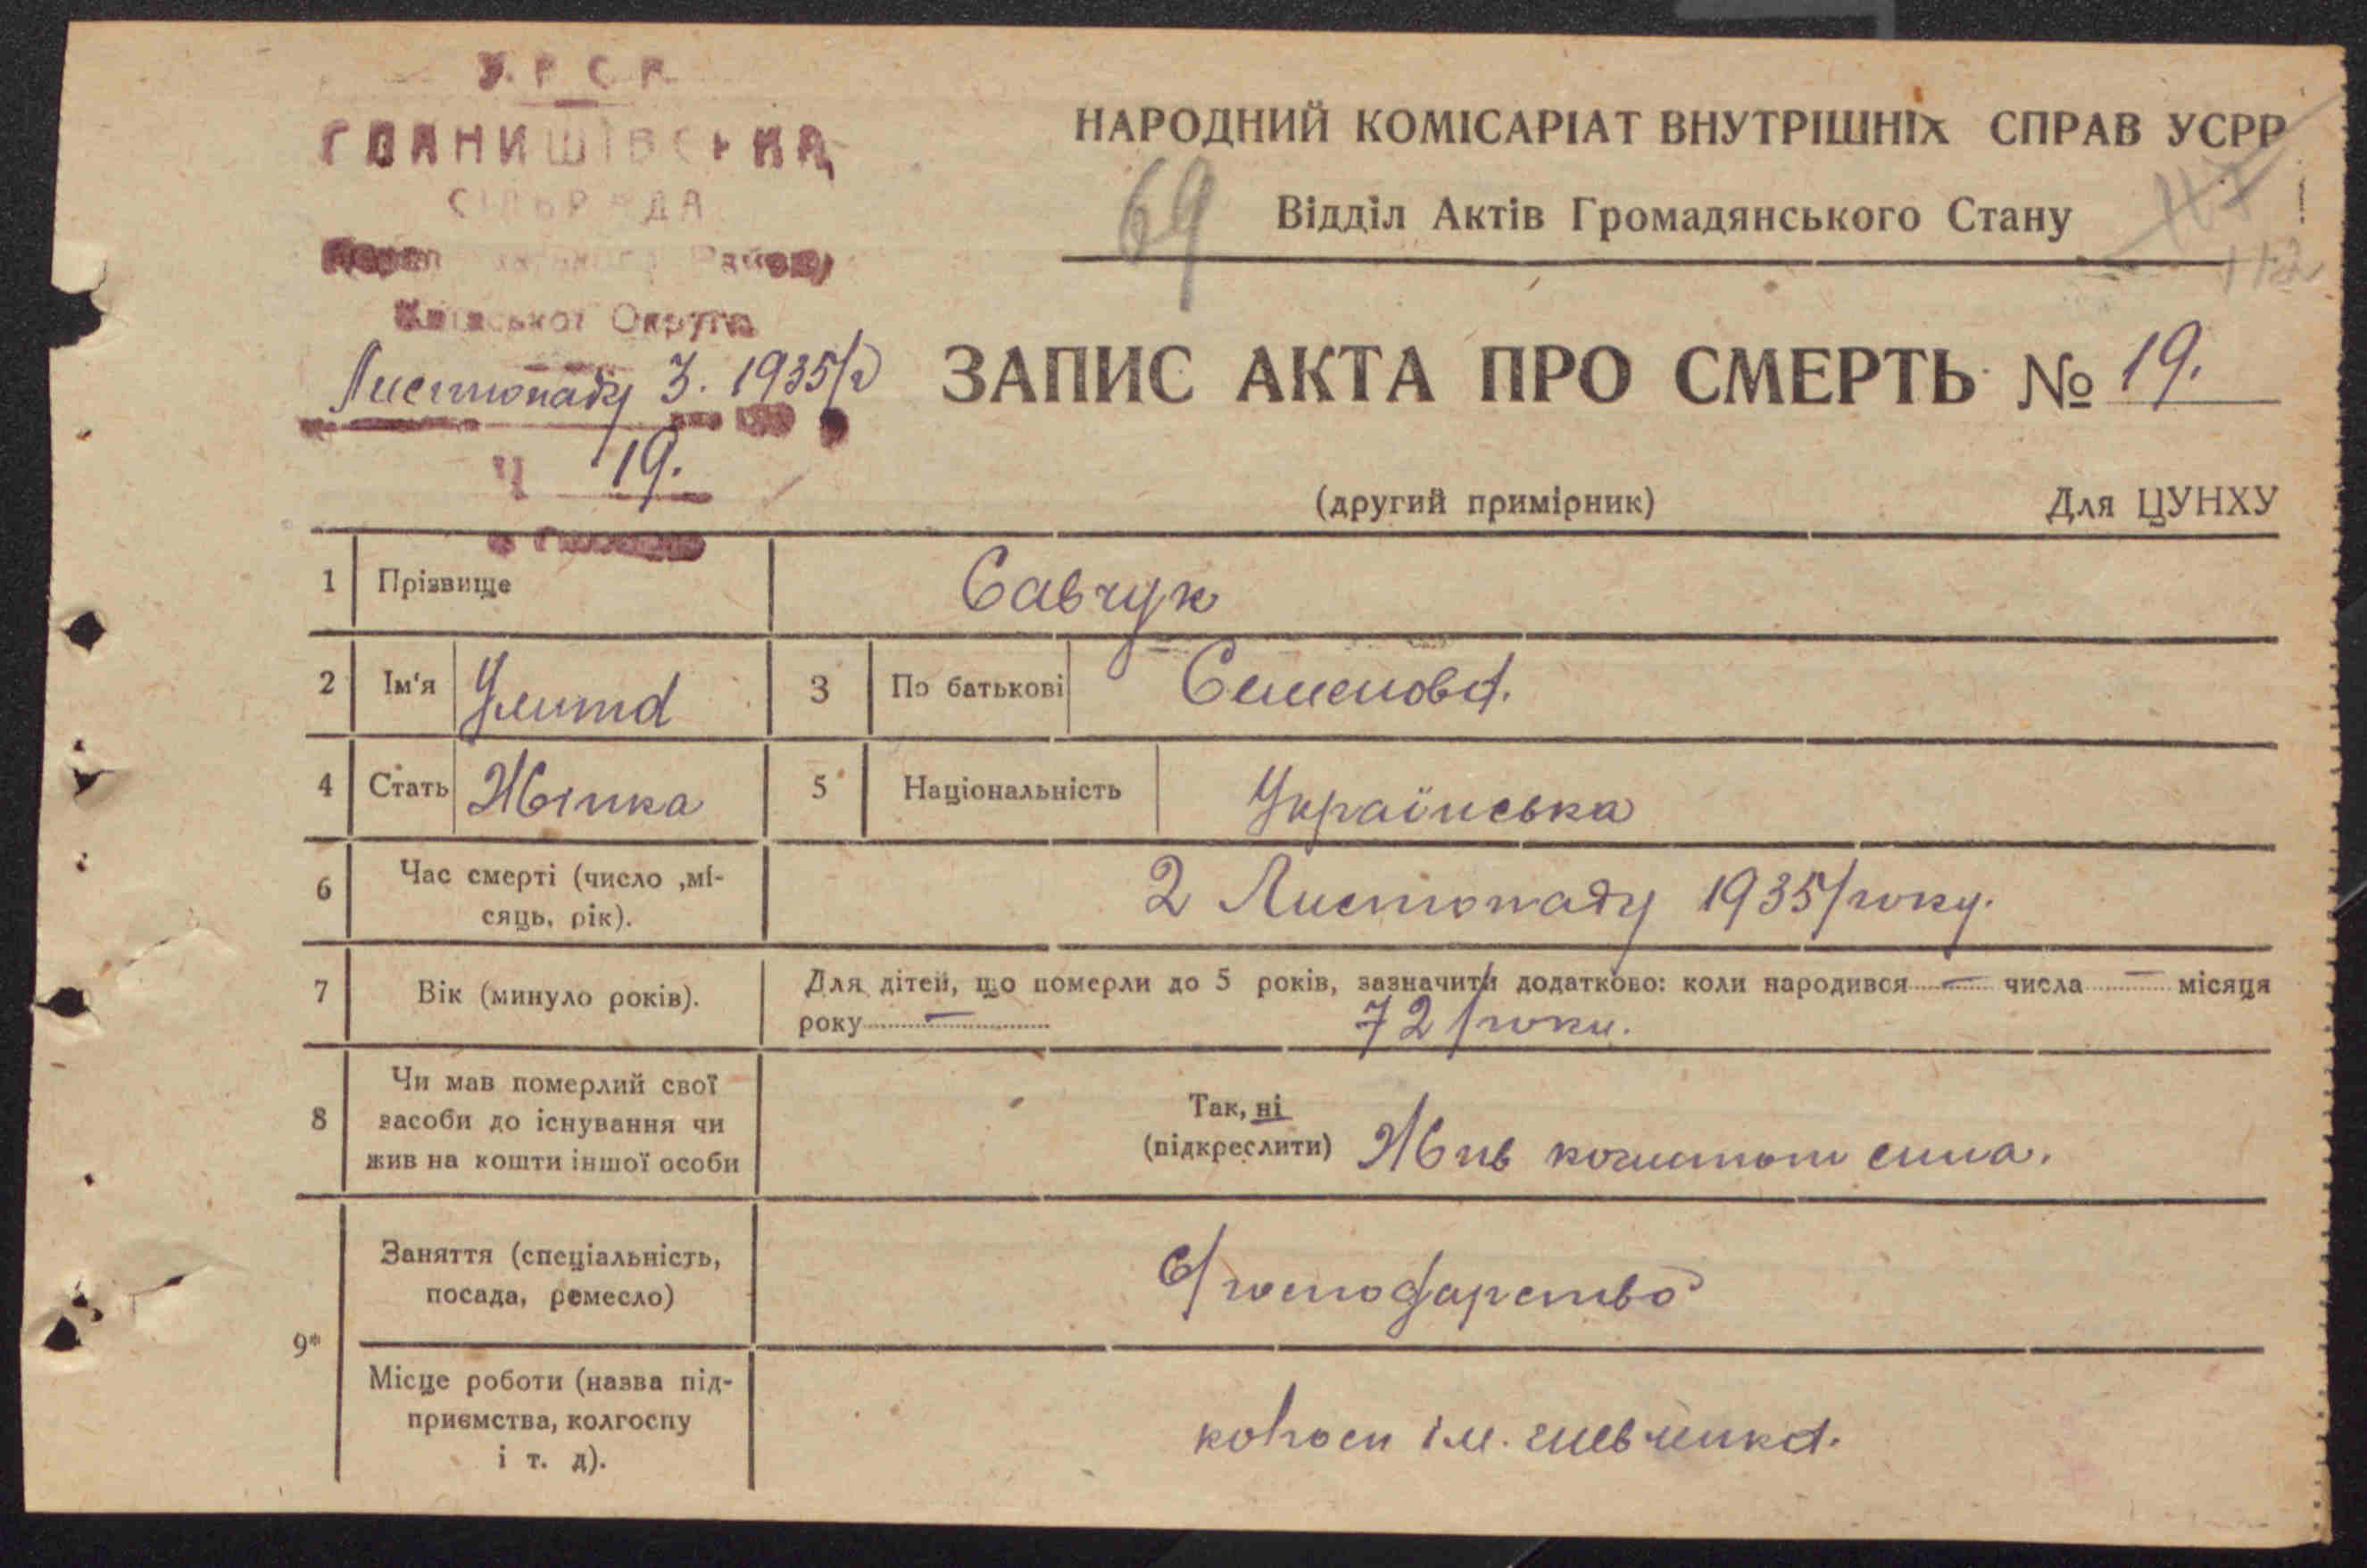 У.Р.С.Р.
ГОЛНИШІВСЬКА
СІЛЬРАДА
Району
Київської Округи
Листопаду 3. 1935/р
Ч 19.
НАРОДНИЙ КОМІСАРІАТ ВНУТРІШНІХ СПРАВ УСРР
69
Відділ Актів Громадянського Стану
117
112
ЗАПИС АКТА ПРО СМЕРТЬ № 19.
(другий примірник) Для ЦУНХУ
1 Прізвище Савчук
2 Ім'я Улита 3 По батькові Семенова.
4 Стать Жінка 5 Національність Українська
6 Час смерті (число ,мі-
сяць, рік). 2 Листопаду 1935/року.
7 Вік (минуло років). Для дітей, що померли до 5 років, зазначити додатково: коли народився — числа — місяця
року — 72/роки.
8 Чи мав померлий свої
засоби до існування чи
жив на кошти іншої особи
Так, ні
(підкреслити) Жив коштом сина.
9* Заняття (спеціальність,
посада, ремесло)
С/господарство
Місце роботи (назва під-
приємства, колгоспу
і т. д).
колгосп ім. шевченка.